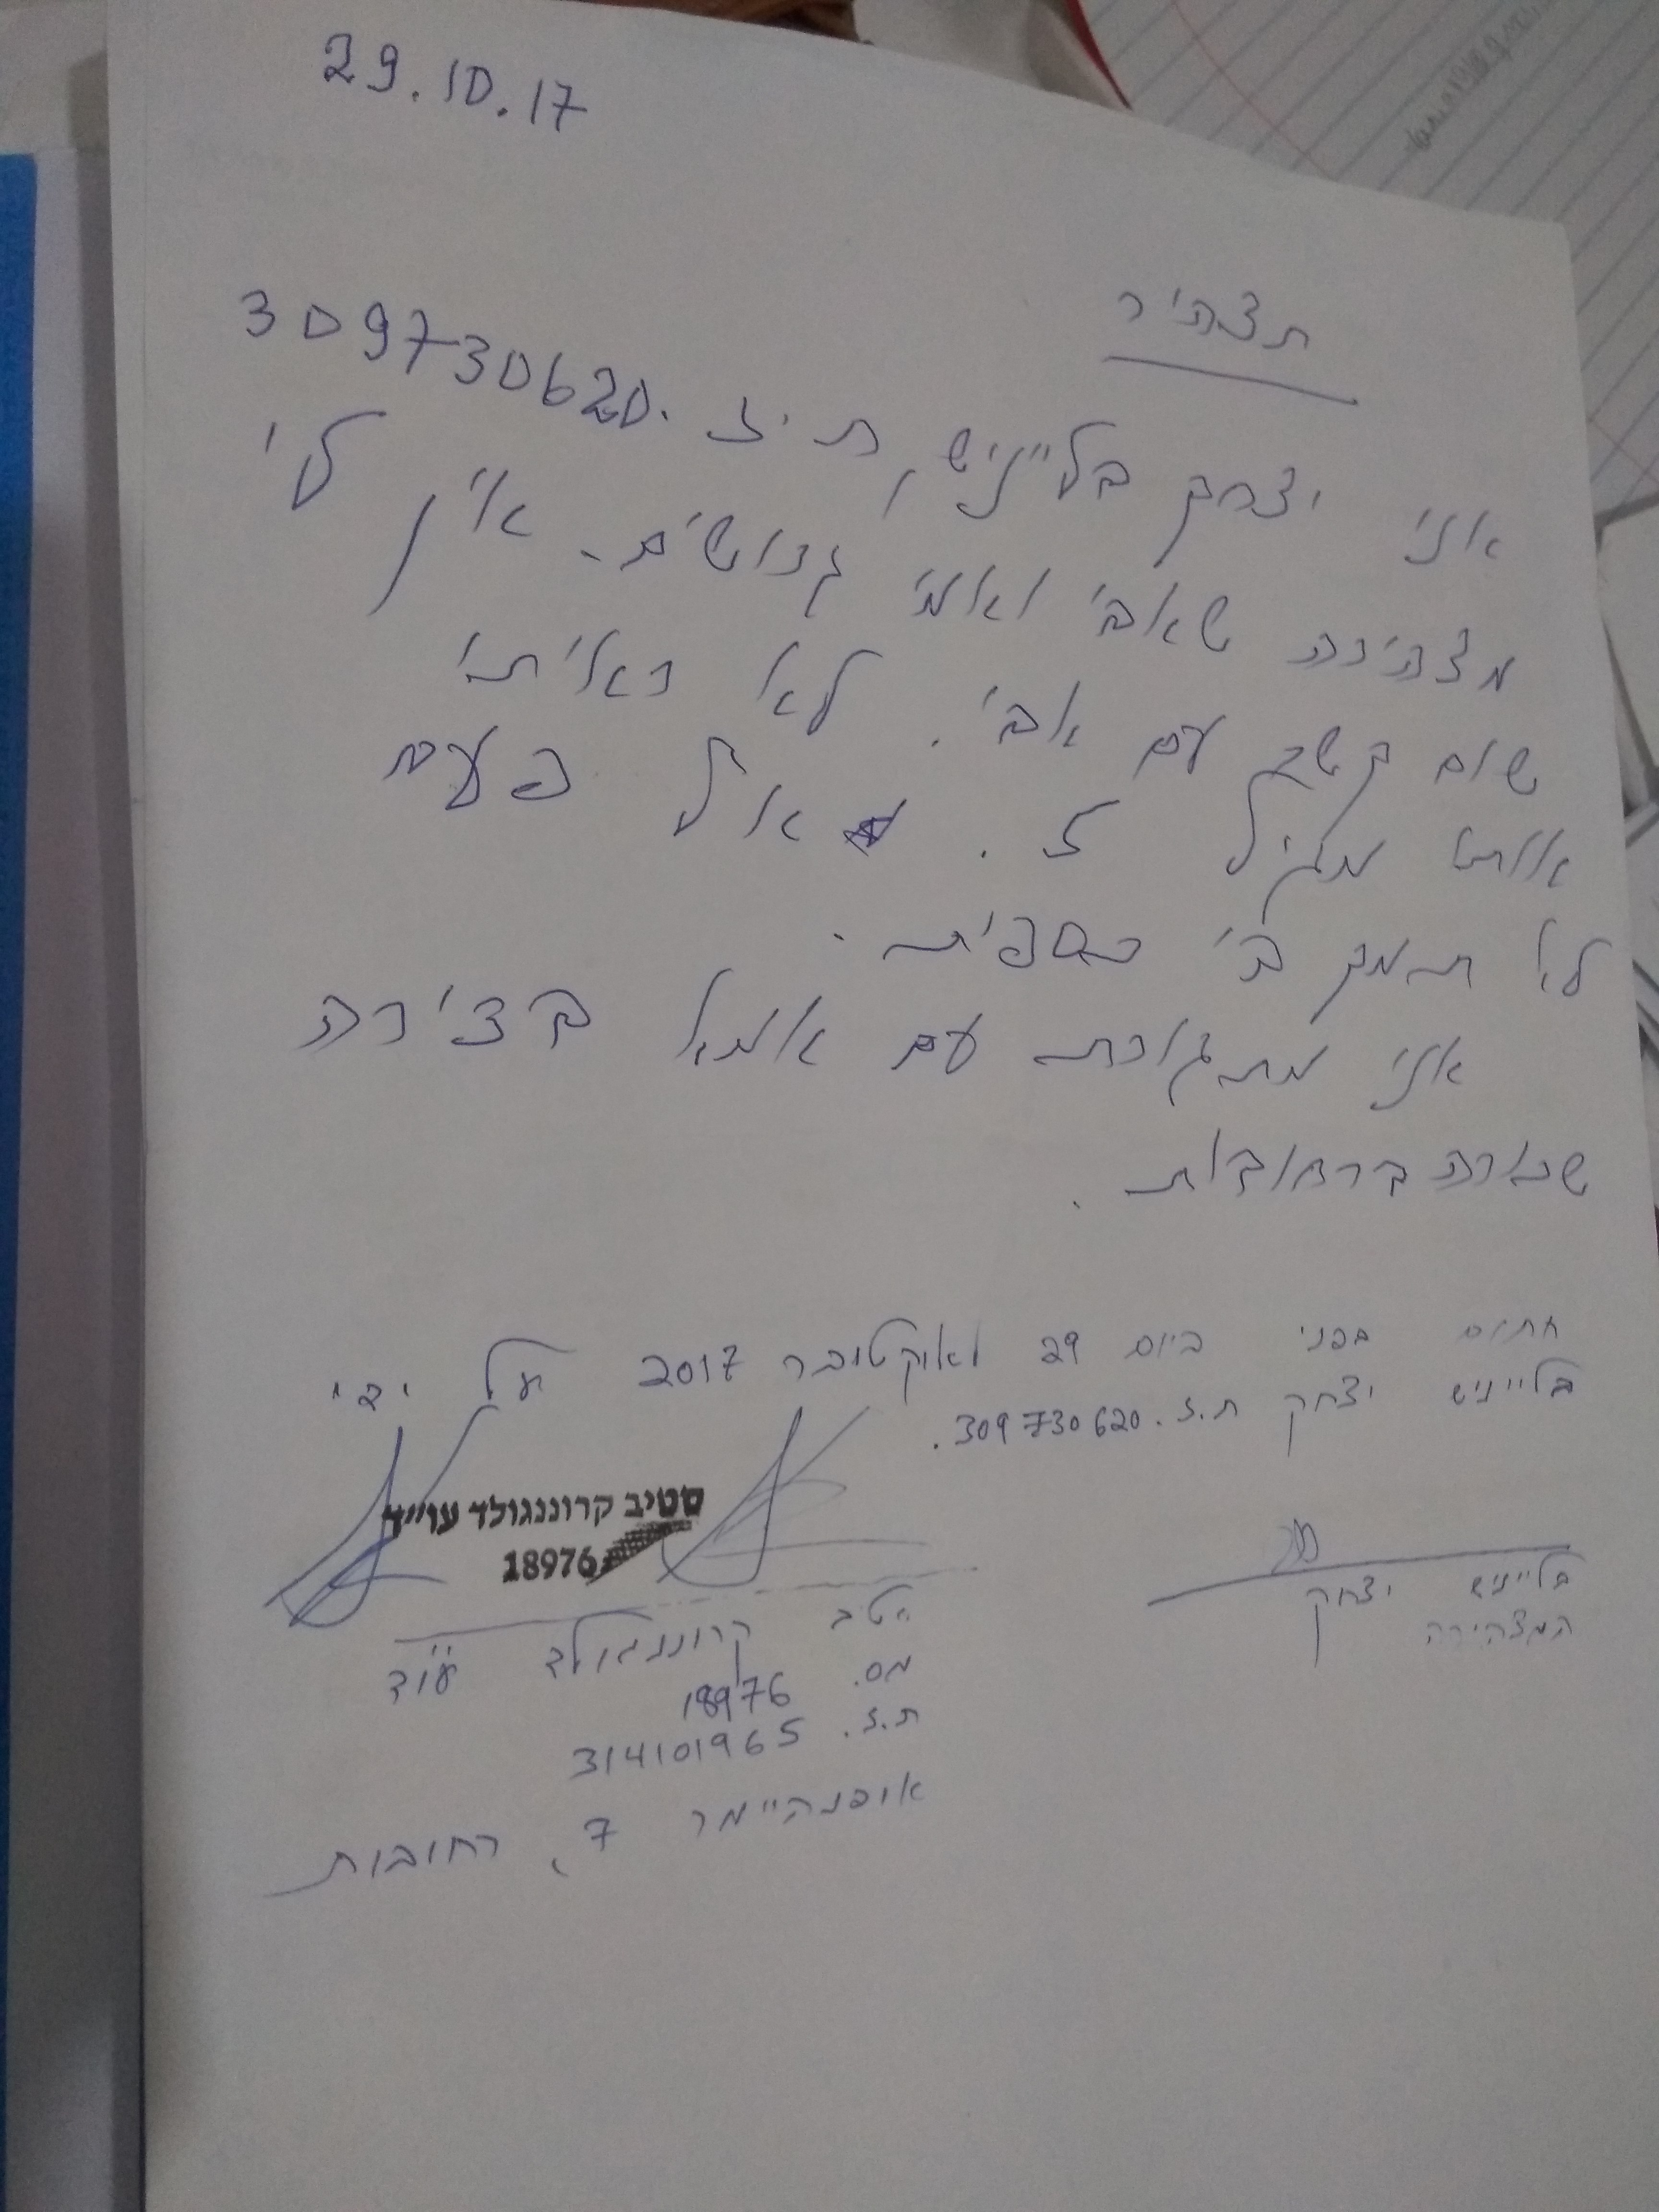 29.10.17
תצהיר
אני יצחק בלייניש, ת.ז. 309730620
מצהירה שאבי ואמי גרושים. אין לי
שום קשר עם אבי. לא ראיתי
אותו מגיל 5. אף פעם
לא תמך בי כספית.
אני מתגוררת עם אמא בדירה
שכורה ברחובות.
חתום בפני ביום 29 לאוקטובר 2017 על ידי
בלייניש יצחק ת.ז. 309730620.
סטיב קרוננגולד עו"ד
18976
בלייניש יצחק
המצהירה
סטיב קרוננגולד עו"ד
מס. 18976
ת.ז. 314101965
אופנהיימר 7, רחובות